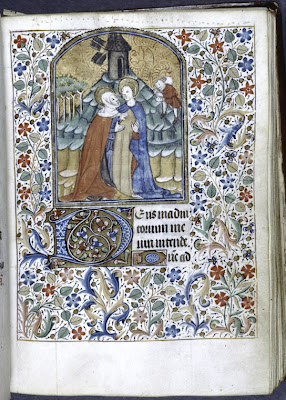 DEus in adiu
torium me
um intende.
ad